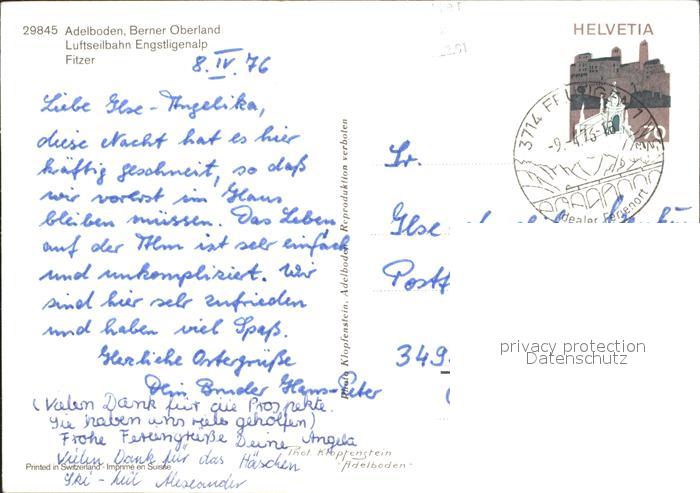 29845 Adelboden, Berner Oberland
Luftseilbahn Engstligenalp
Fitzer
HELVETIA
70
8.IV.76
3714 FRUTIGEN 1
-9.-4.76-18
Idealer Ferienort
Liebe Ilse-Angelika,
diese Nacht hat es hier
kräftig geschneit, so daß
wir vorerst im Haus
bleiben müssen. Das Leben
auf der Alm ist sehr einfach
und unkompliziert. Wir
sind hier sehr zufrieden
und haben viel Spaß.
Herzliche Ostergrüße
Dein Bruder Hans-Peter
(Vielen Dank für die Prospekte.
Sie haben uns viel geholfen)
Frohe Feriengrüße Deine Angela
Vielen Dank für das Häschen
Ski-heil Alexander
Photo Klopfenstein, Adelboden. Reproduktion verboten
Fr.
Ilse
Postf
349
privacy protection
Datenschutz
Phot. Klopfenstein
"Adelboden"
Printed in Switzerland - Imprimé en Suisse